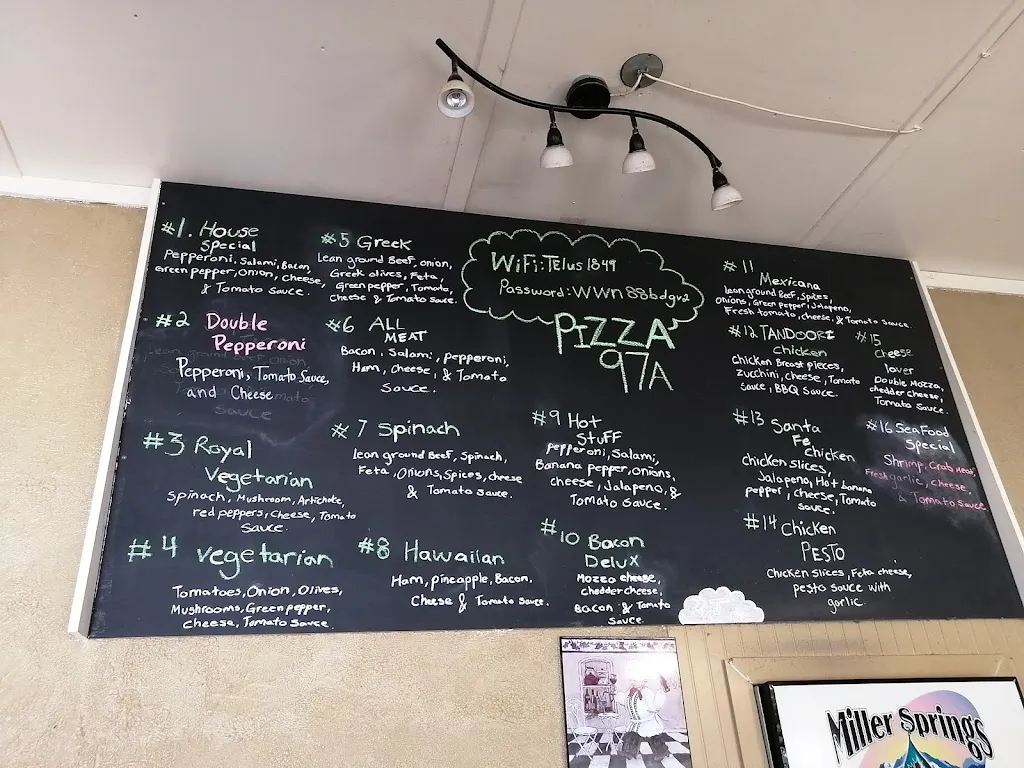 #1. House
Special
Pepperoni, Salami, Bacon,
Green pepper, Onion, Cheese,
& Tomato Sauce.
#2 Double
Pepperoni
Pepperoni, Tomato Sauce,
and Cheese
sauce
#3 Royal
Vegetarian
Spinach, Mushroom, Artichoke,
red peppers, cheese, Tomato
Sauce.
#4 vegetarian
Tomatoes, Onion, Olives,
Mushrooms, Green pepper,
cheese, Tomato Sauce.
#5 Greek
Lean ground Beef, onion,
Greek olives, Feta,
Green pepper, Tomato,
cheese & Tomato Sauce.
#6 ALL
MEAT
Bacon, Salami, pepperoni,
Ham, cheese, & Tomato
Sauce.
#7 Spinach
lean ground Beef, Spinach,
Feta, Onions, Spices, cheese
& Tomato sauce.
#8 Hawaiian
Ham, pineapple, Bacon,
Cheese & Tomato Sauce.
WiFi: Telus 1849
Password: WWn88bdgv2
PIZZA
97A
#9 Hot
Stuff
Pepperoni, Salami,
Banana pepper, onions,
cheese, Jalapeno, &
Tomato Sauce.
#10 Bacon
Delux
Mozzo cheese,
chedder cheese,
Bacon & Tomato
Sauce.
#11
Mexicana
lean ground Beef, Spices,
onions, Green pepper, Jalapeno,
Fresh tomato, cheese, & Tomato Sauce.
#12 TANDOORI
Chicken
chicken Breast pieces,
zucchini, cheese, Tomato
Sauce, BBQ Sauce.
#13 Santa
Fe
Chicken
chicken slices,
Jalapeno, Hot banana
pepper, cheese, Tomato
Sauce.
#14 Chicken
PESTO
Chicken Slices, Feta cheese,
pesto sauce with
garlic.
#15
Cheese
lover
Double Mozzo,
chedder cheese,
Tomato Sauce.
#16 SeaFood
Special
Shrimp, Crab meat,
Fresh garlic, cheese,
& Tomato Sauce
Miller Springs